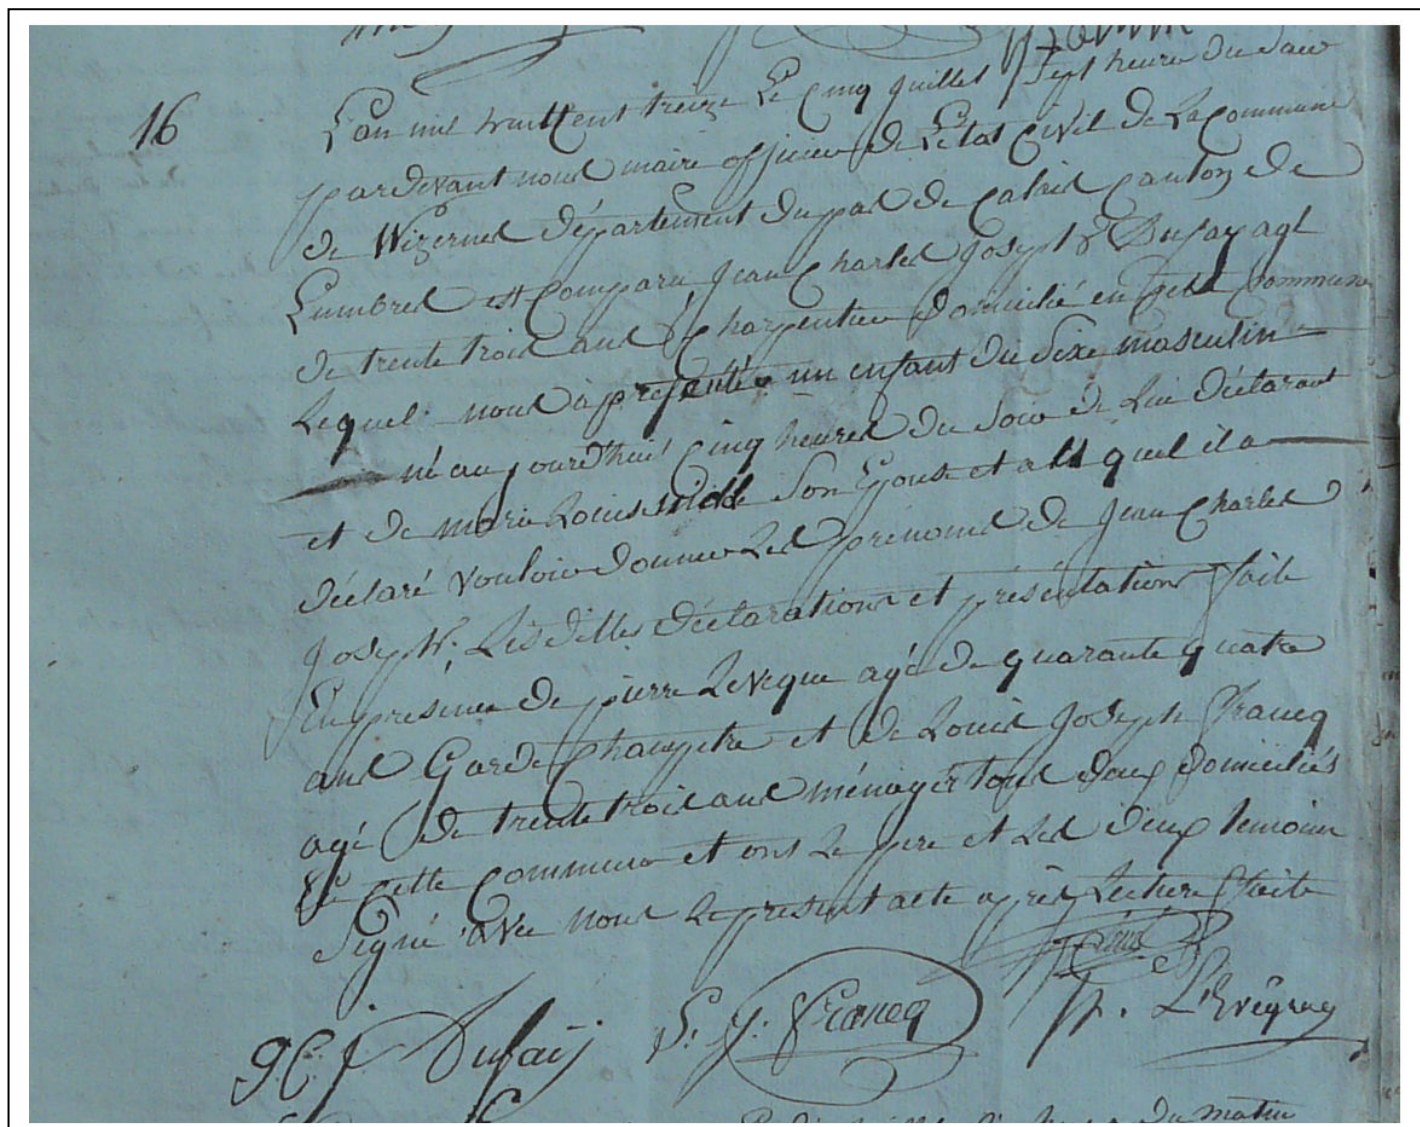 16
L'an mil huit cent treize Le cinq juillet sept heure du Soir
pardevant nous maire officier de L'état civil de La commune
de Wizernes département du pas de calais canton de
Lumbres est comparu jean charles joseph Dufay agé
de trente trois ans charpentier domicilié en cette commune
Lequel nous a présenté un enfant du Sexe masculin
né aujourd'hui cinq heures du Soir de Lui déclarant
et de marie Louise Son Epouse et au quel il a
déclaré vouloir donner Les prénoms de jean charles
joseph; Lesdittes déclarations et présentations faite
En présence de pierre Leveque agé de quarante quatre
ans Garde champetre et de Louis joseph francq
agé de trente trois ans ménager tous deux domiciliés
de cette commune et ont Le pere et Les deux temoins
Signé avec nous Le present acte après Lecture faite
J C j Dufaij L. j. francq p. L'Evêque
du matin